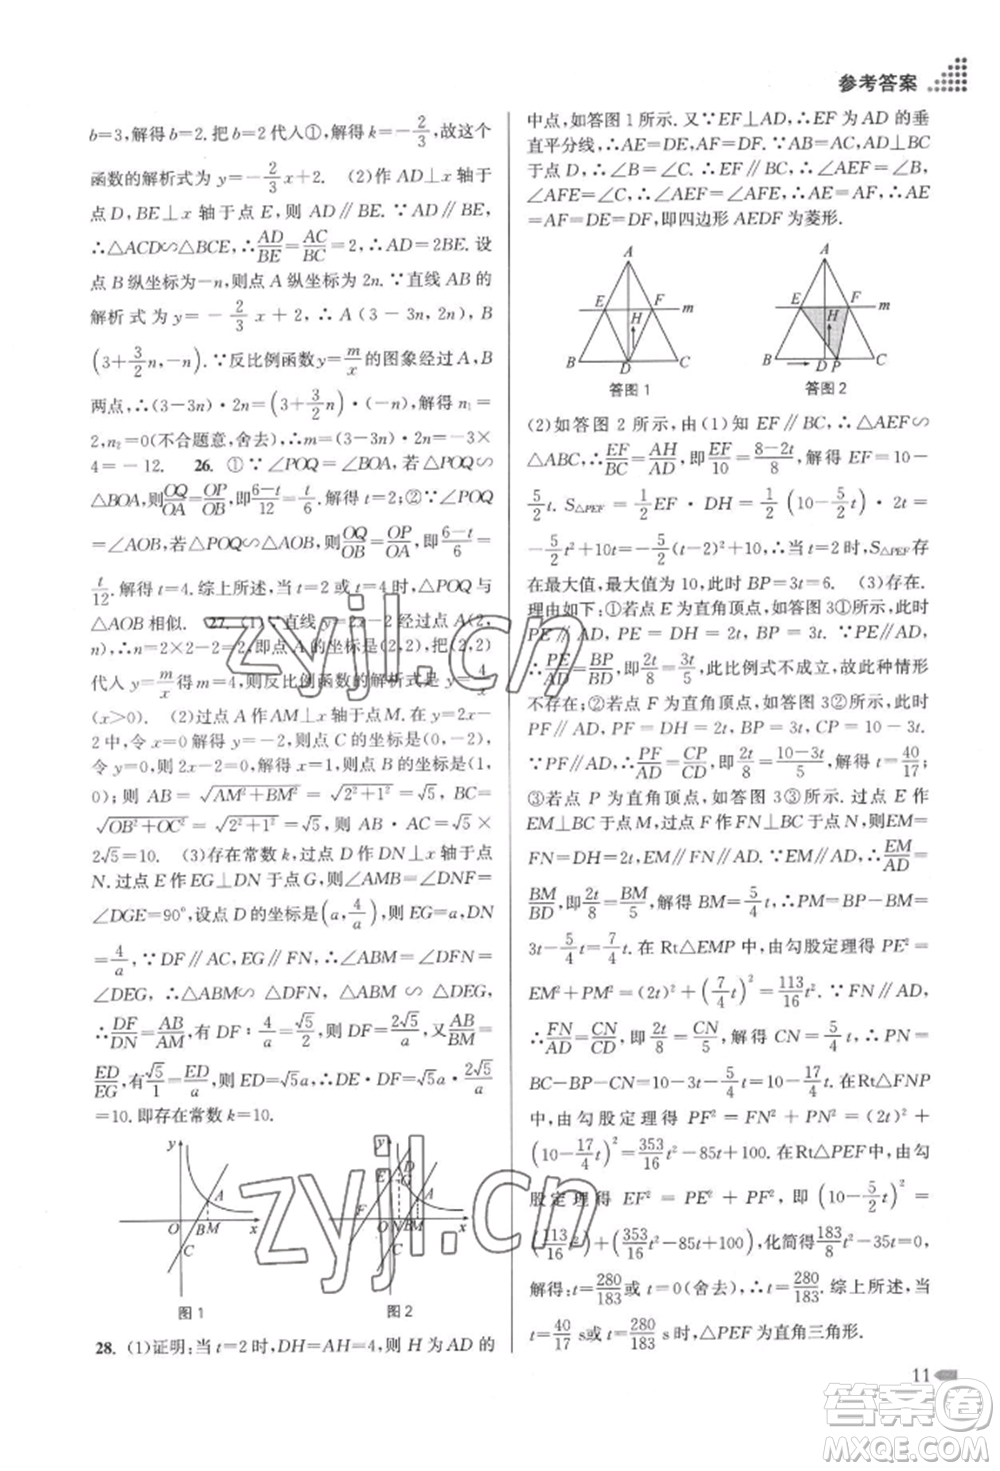 参考答案
b=3,解得 b=2. 把 b=2 代入①,解得 k=-2/3,故这个
函数的解析式为 y=-2/3x+2. (2)作 AD⊥x 轴于
点 D,BE⊥x 轴于点 E,则 AD∥BE. ∵AD∥BE,
∴△ACD∽△BCE,∴AD/BE=AC/BC=2,∴AD=2BE. 设
点 B 纵坐标为-n,则点 A 纵坐标为 2n. ∵直线 AB 的
解析式为 y=-2/3x+2,∴A(3-3n,2n),
B(3+3/2n,-n). ∵反比例函数y=m/x的图象经过 A,B
两点,∴(3-3n)·2n=(3+3/2n)·(-n),解得 n₁=
2,n₂=0(不合题意,舍去),∴m=(3-3n)·2n=-3×
4=-12. 26. ①∵∠POQ=∠BOA,若△POQ∽
△BOA,则OQ/OA=OP/OB,即(6-t)/12=t/6. 解得 t=2;②∵∠POQ
=∠AOB,若△POQ∽△AOB,则OQ/OB=OP/OA,即(6-t)/6=
t/12. 解得 t=4. 综上所述,当 t=2 或 t=4 时,△POQ 与
△AOB 相似. 27. (1)∵直线 y=2x-2 经过点 A(2,
n),∴n=2×2-2=2,即点 A 的坐标是(2,2),把(2,2)
代入 y=m/x得 m=4,则反比例函数的解析式是 y=4/x
(x>0). (2)过点 A 作 AM⊥x 轴于点 M. 在 y=2x-
2 中,令 x=0 解得 y=-2,则点 C 的坐标是(0,-2).
令 y=0 解得 x=1,则点 B 的坐标是(1,
0). 则 AB=√(AM²+BM²)=√(2²+1²)=√5,BC=
√(OB²+OC²)=√(2²+1²)=√5. 则 AB·AC=√5×
2√5=10. (3)存在常数 k,过点 D 作 DN⊥x 轴于点
N. 过点 E 作 EG⊥DN 于点 G,则∠AMB=∠DNF=
∠DGE=90°,设点 D 的坐标是(a,4/a),则 EG=a,DN
=4/a, ∵DF∥AC,EG∥FN,∴∠ABM=∠DFN=
∠DEG, ∴△ABM∽△DFN,△ABM∽△DEG,
∴DF/DN=AB/AM,有 DF:4/a=√5/2,∴DF=2√5/a,又AB/BM=
ED/EG,有√5/1=ED/a,∴ED=√5a,则 DE·DF=√5a·2√5/a
=10. 即存在常数 k=10.
y
A
O
B M
x
C
图 1
y
E
D
G
A
F
O
N B M
x
C
图 2
28. (1)证明:当 t=2 时,DH=AH=4,则 H 为 AD 的
中点,如答图 1 所示. 又∵EF⊥AD,∴EF 为 AD 的垂
直平分线,∴AE=DE,AF=DF. ∵AB=AC,AD⊥BC
于点 D,∴∠B=∠C,∴EF∥BC,∴∠AEF=∠B,
∠AFE=∠C,∴∠AEF=∠AFE,∴AE=AF,∴AE=
AF=DE=DF,即四边形 AEDF 为菱形.
A
E
F
m
H
B
D
C
答图 1
A
E
F
m
H
B
D P
C
答图 2
(2)如答图 2 所示,由(1)知 EF∥BC,∴△AEF∽
△ABC,∴EF/BC=AH/AD,即EF/10=(8-2t)/8,解得 EF=10-
5/2t. S△PEF=1/2EF·DH=1/2(10-5/2t)·2t=
-5/2t²+10t=-5/2(t-2)²+10,∴当 t=2 时,S△PEF存
在最大值,最大值为 10,此时 BP=3t=6. (3)存在.
理由如下:①若点 E 为直角顶点,如答图 3①所示,此时
PE∥AD,PE=DH=2t,BP=3t. ∵PE∥AD,
∴PE/AD=BP/BD,即2t/8=3t/5,此比例式不成立,故此种情形
不存在;②若点 F 为直角顶点,如答图 3②所示,此时
PF∥AD,PF=DH=2t,BP=3t,CP=10-3t.
∵PF∥AD,∴PF/AD=CP/CD,即2t/8=(10-3t)/5,解得 t=40/17;
③若点 P 为直角顶点,如答图 3③所示. 过点 E 作
EM⊥BC 于点 M,过点 F 作 FN⊥BC 于点 N,则 EM=
FN=DH=2t,EM∥FN∥AD. ∵EM∥AD,∴EM/AD=
BM/BD,即2t/8=BM/5,解得 BM=5/4t,∴PM=BP-BM=
3t-5/4t=7/4t. 在 Rt△EMP 中,由勾股定理得 PE²=
EM²+PM²=(2t)²+(7/4t)²=113/16t². ∵FN∥AD,
∴FN/AD=CN/CD,即2t/8=CN/5,解得 CN=5/4t,∴PN=
BC-BP-CN=10-3t-5/4t=10-17/4t. 在Rt△FNP
中,由勾股定理得 PF²=FN²+PN²=(2t)²+
(10-17/4t)²=353/16t²-85t+100. 在Rt△PEF中,由勾
股定理得 EF²=PE²+PF²,即(10-5/2t)²=
(113/16t²)+(353/16t²-85t+100),化简得183/8t²-35t=0,
解得:t=280/183或 t=0(舍去),∴t=280/183. 综上所述,当
t=40/17 s或 t=280/183 s 时,△PEF 为直角三角形.
11
zyjl.cn
zyjl.cn
答案圈
MXQE.COM